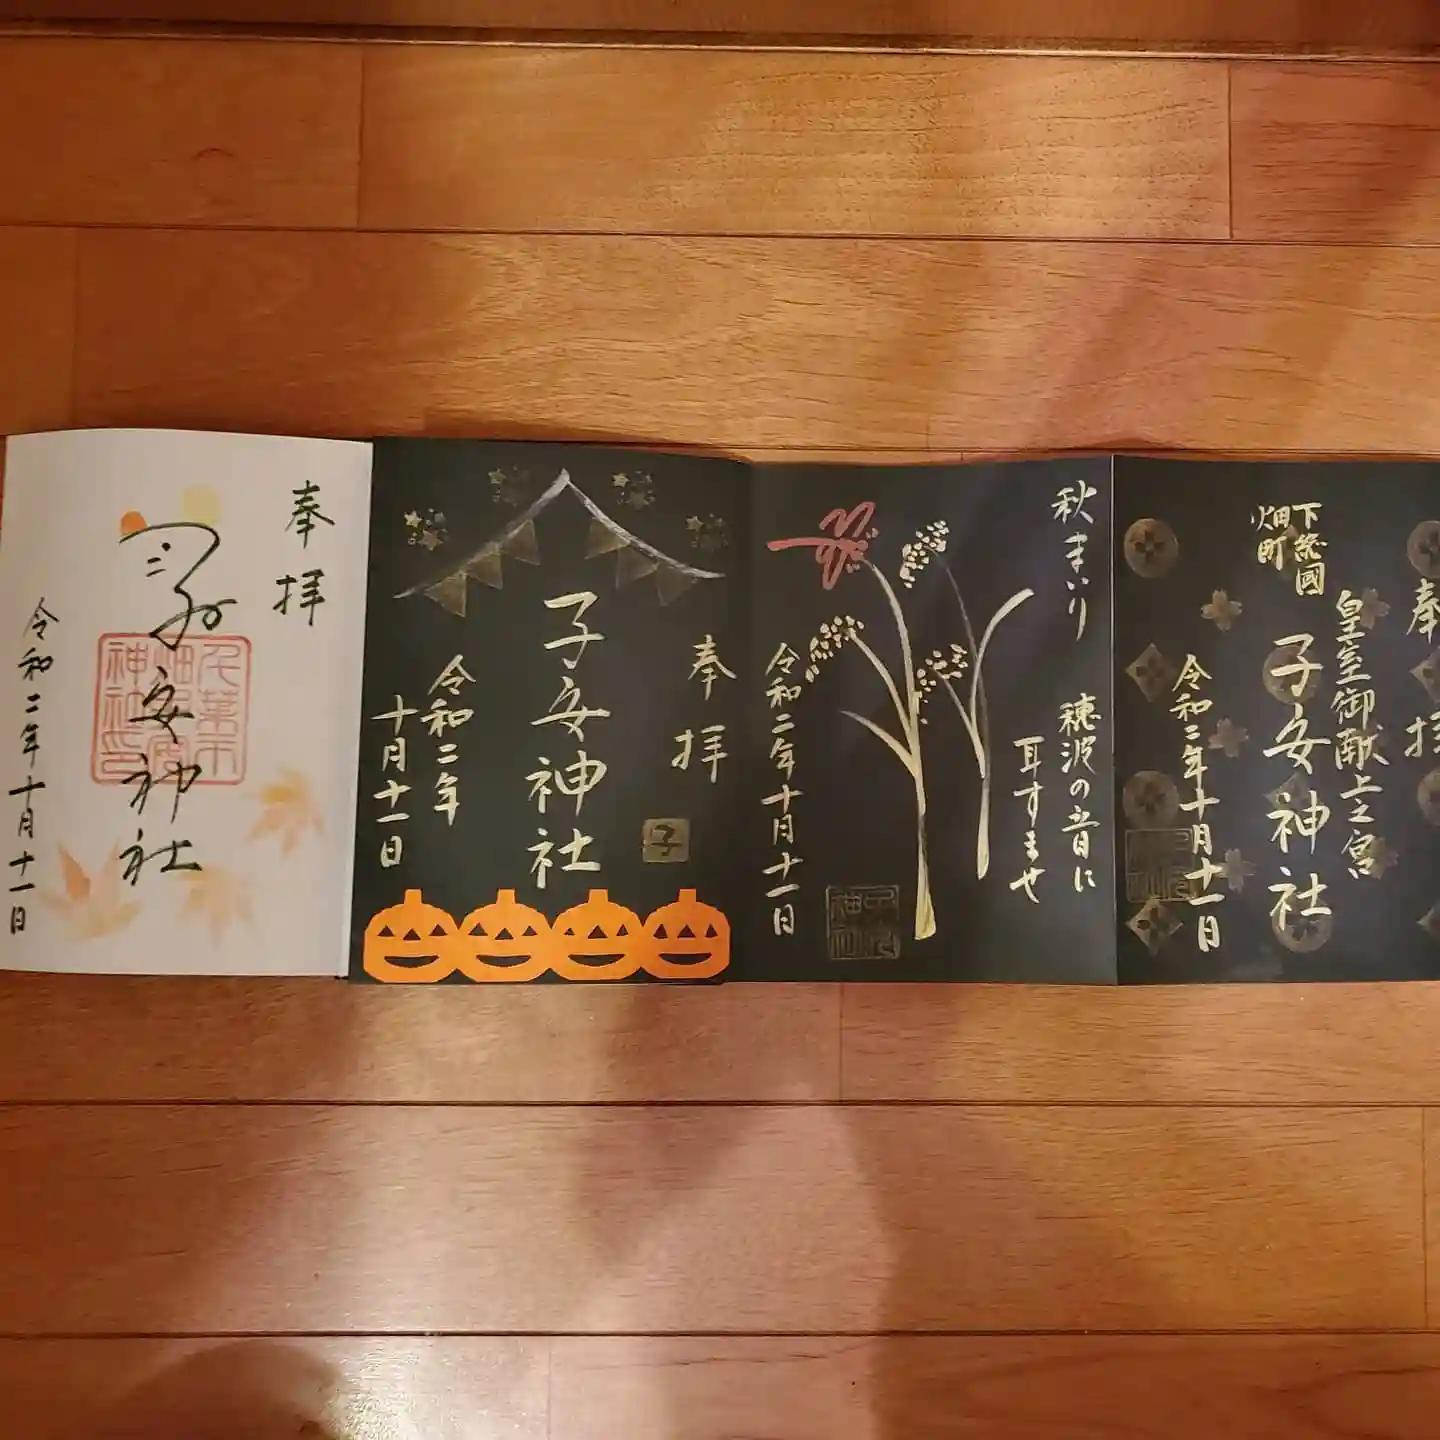 奉拝
子安神社
千葉市
畑子安
神社印
令和二年十月十一日
奉拝
子
子安神社
令和二年
十月十一日
秋まいり
穂波の音に
耳すませ
令和二年十月十一日
奉拝
皇室御献上之宮
下総國
畑町
子安神社
令和二年十月十一日